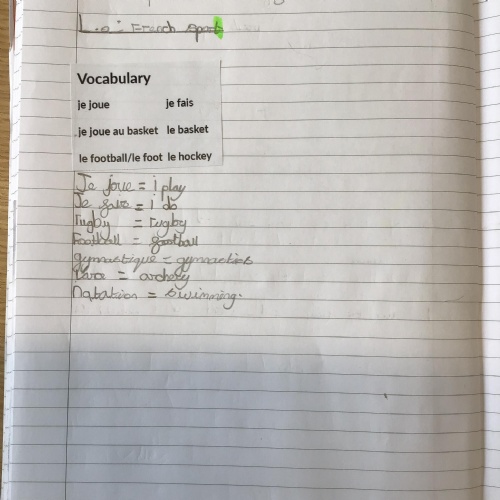 L.o: French sport
Vocabulary
je joue je fais
je joue au basket le basket
le football/le foot le hockey
Je joue = i play
Je fais = i do
rugby = rugby
Football = football
gymnastique = gymnactics
= archery
natation = swimming.